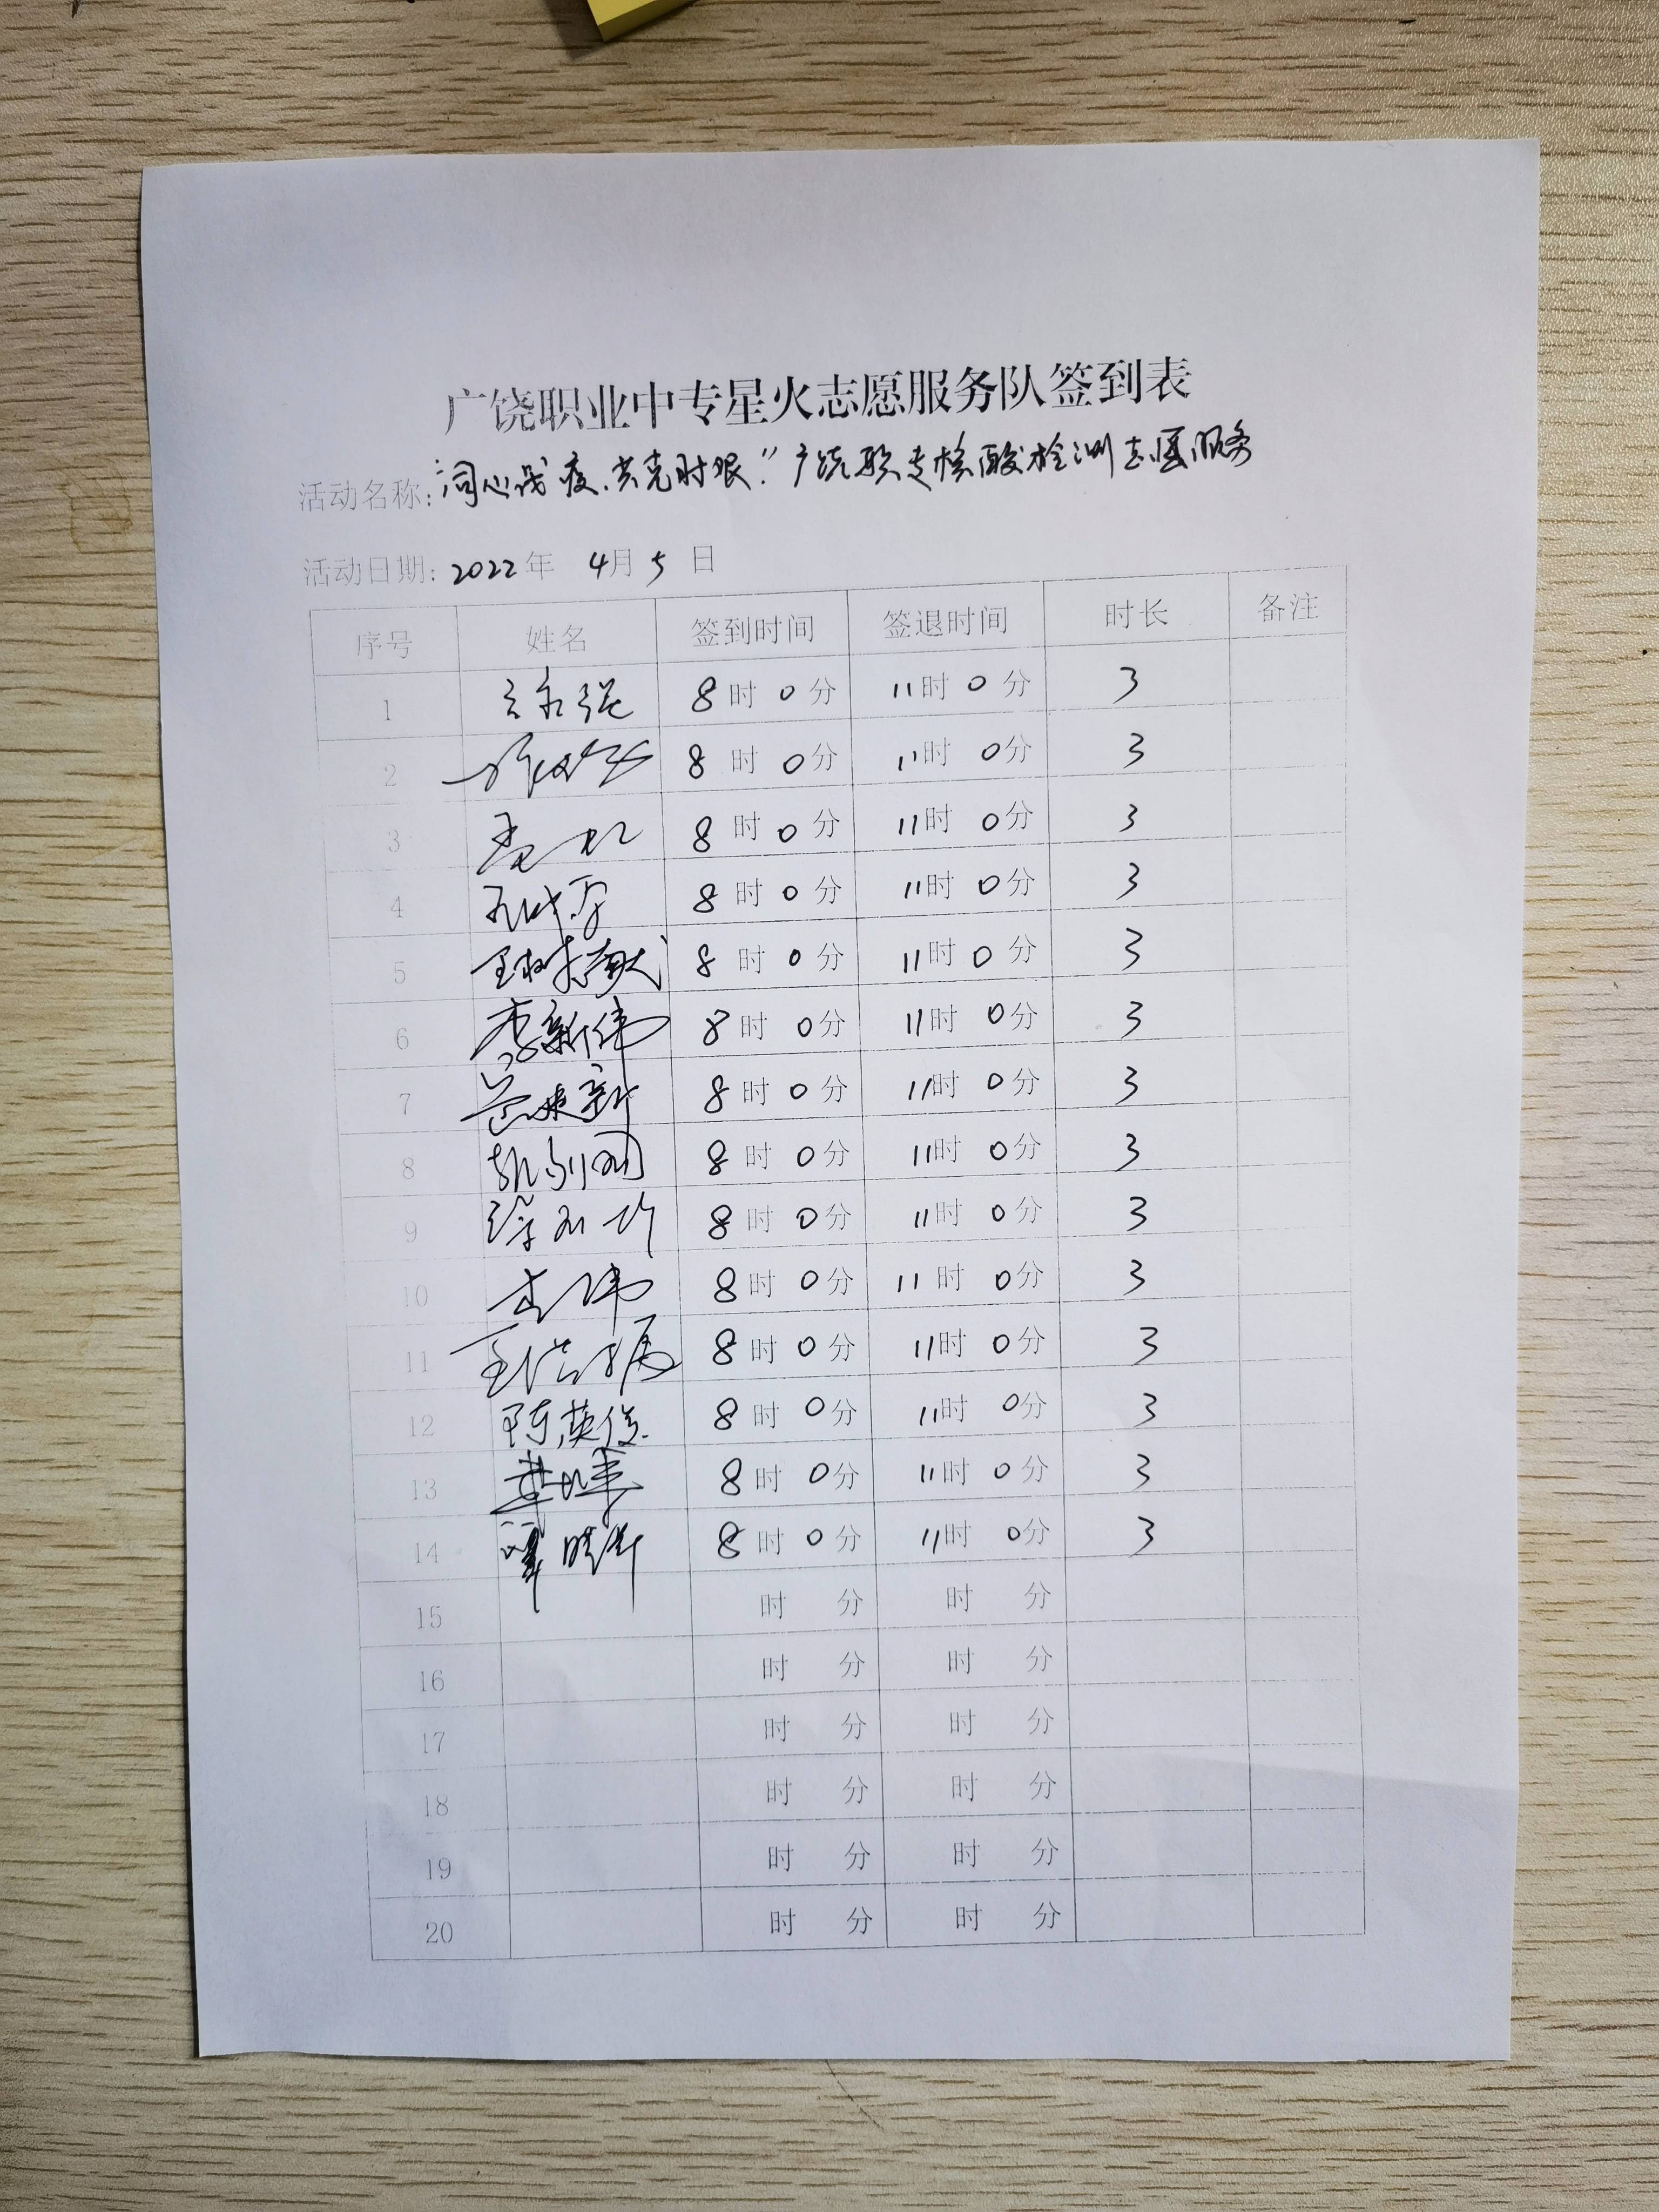 广饶职业中专星火志愿服务队签到表
活动名称:"同心战疫、共克时艰"广饶职专核酸检测志愿服务
活动日期: 2022年 4月 5 日
序号 姓名 签到时间 签退时间 时长 备注
1 8时0分 11时0分 3
2 8时0分 11时0分 3
3 8时0分 11时0分 3
4 8时0分 11时0分 3
5 8时0分 11时0分 3
6 李新伟 8时0分 11时0分 3
7 8时0分 11时0分 3
8 8时0分 11时0分 3
9 8时0分 11时0分 3
10 李伟 8时0分 11时0分 3
11 8时0分 11时0分 3
12 陈英俊 8时0分 11时0分 3
13 8时0分 11时0分 3
14 8时0分 11时0分 3
15 时 分 时 分
16 时 分 时 分
17 时 分 时 分
18 时 分 时 分
19 时 分 时 分
20 时 分 时 分